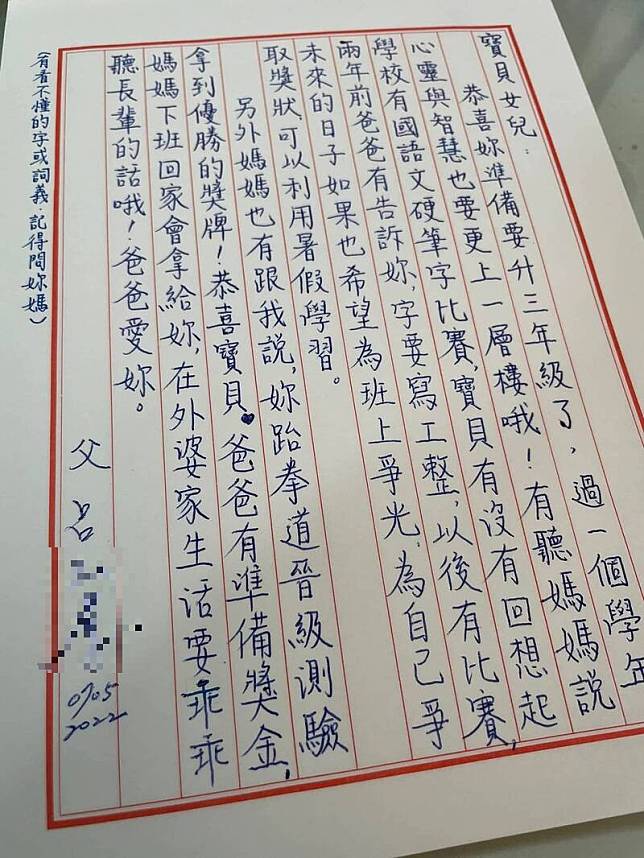 寶貝女兒：
恭喜妳準備要升三年級了，過一個學年
心靈與智慧也要更上一層樓哦！有聽媽媽說
學校有國語文硬筆字比賽，寶貝有沒有回想起
兩年前爸爸有告訴妳，字要寫工整，以後有比賽，
未來的日子如果也希望為班上爭光，為自己爭
取獎狀可以利用暑假學習。
另外媽媽也有跟我說，妳跆拳道晉級測驗
拿到優勝的獎牌！恭喜寶貝♥爸爸有準備獎金，
媽媽下班回家會拿給妳，在外婆家生活要乖乖
聽長輩的話哦！爸爸愛妳。
父
07/05
2022
（有看不懂的字或詞義，記得問妳媽）